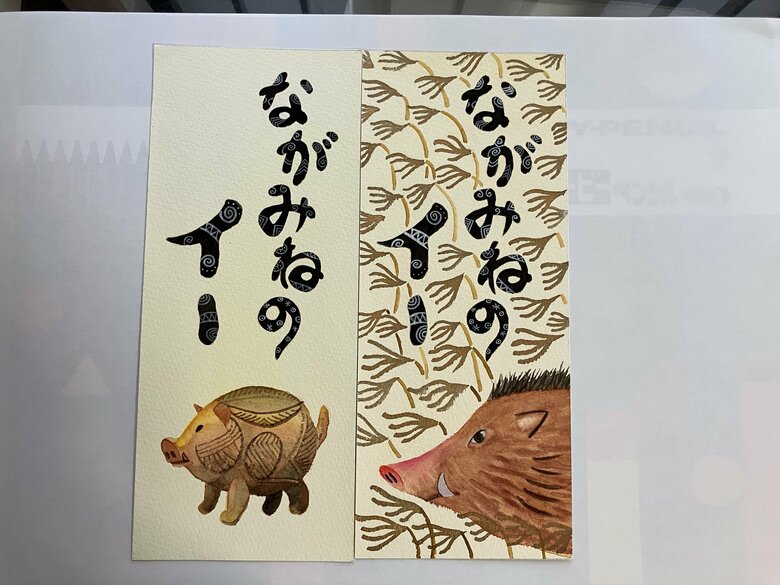 ながみねの
イー
ながみねの
イー